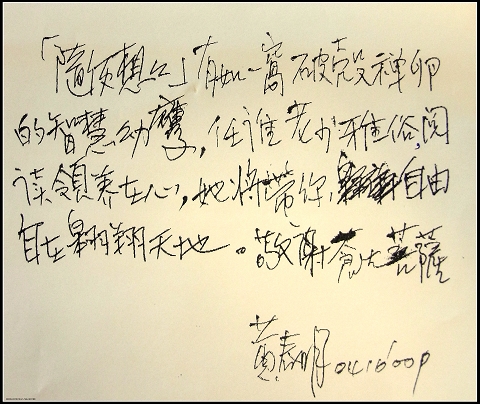 「隨緣想々」有如一窩破殼禪卵
的智慧幼鷹,任誰老少雅俗,閱
讀領养在心,她將帶你自由
自在翱翔天地。敬謝眾生菩薩
黃泰明 041600P